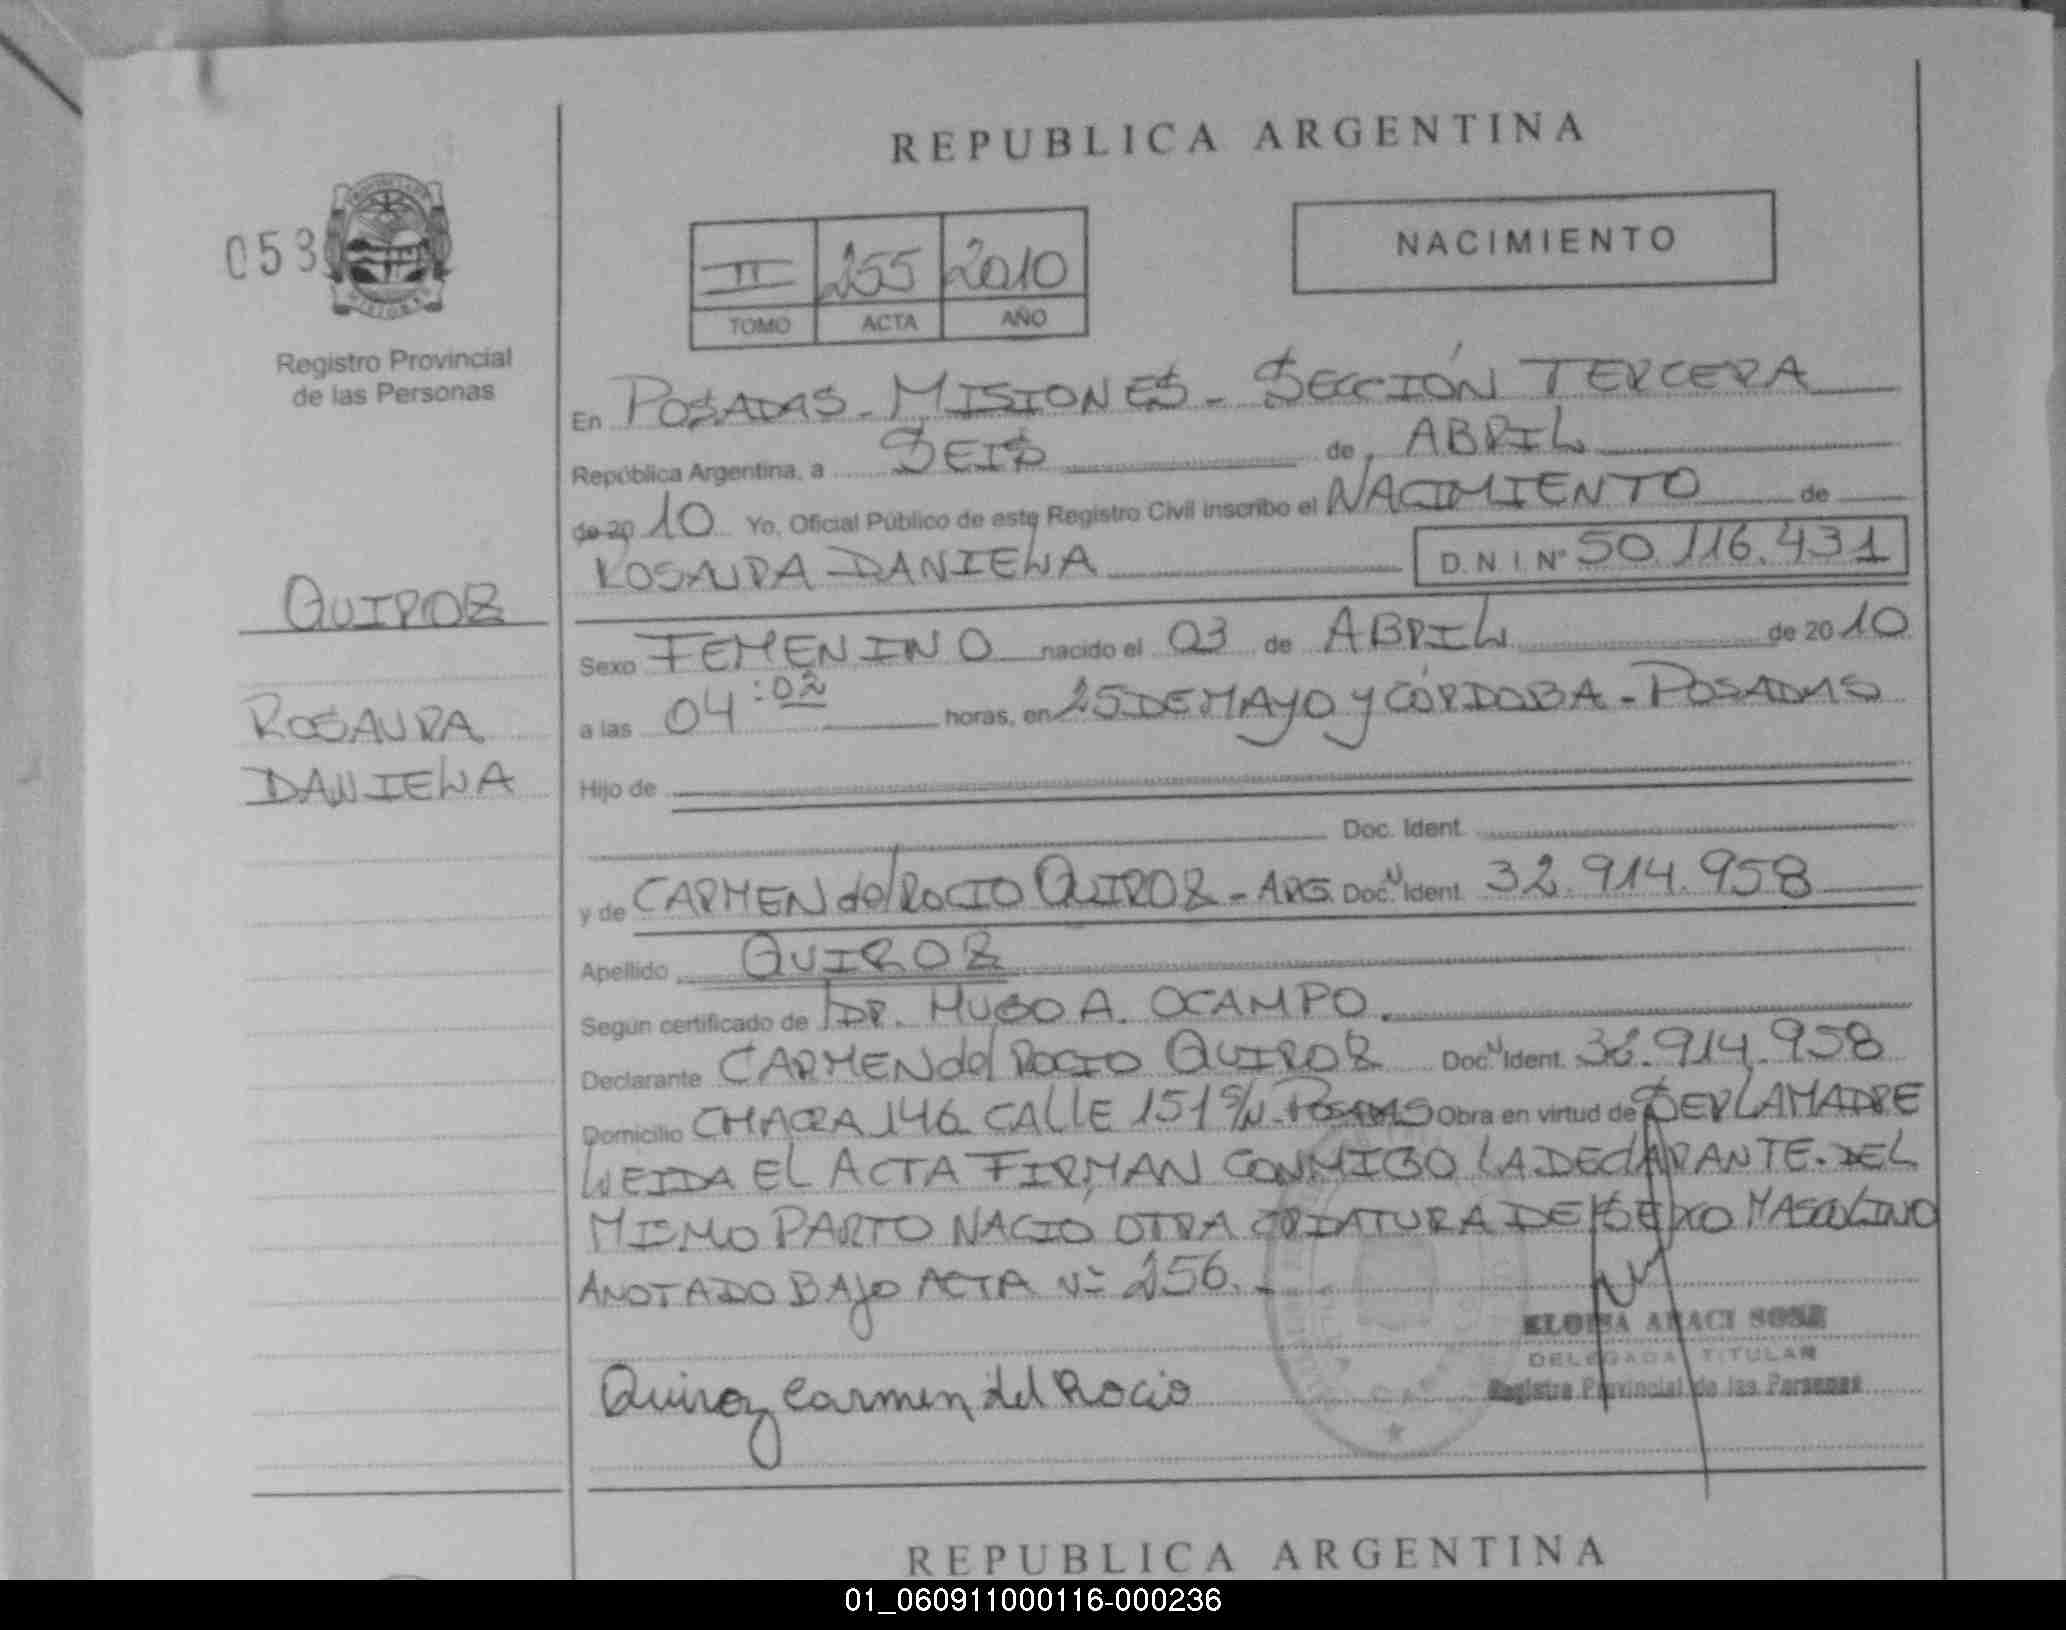 REPUBLICA ARGENTINA
053
II 255 2010
TOMO ACTA AÑO
NACIMIENTO
Registro Provincial
de las Personas
QUIROZ
ROSAURA
DANIELA
En POSADAS - MISIONES - SECCIÓN TERCERA
República Argentina, a SEIS de ABRIL
de 20 10 Yo, Oficial Público de este Registro Civil inscribo el NACIMIENTO de
ROSAURA DANIELA D.N.I. Nº 50.116.431
Sexo FEMENINO nacido el 03 de ABRIL de 20 10
a las 04:02 horas, en 25 DE MAYO y CÓRDOBA - POSADAS
Hijo de
Doc. Ident.
y de CARMEN del ROCIO QUIROZ - ARG. Doc. N Ident. 32.914.958
Apellido QUIROZ
Según certificado de DR. HUGO A. OCAMPO.
Declarante CARMEN del ROCIO QUIROZ Doc. N Ident. 32.914.958
Domicilio CHACRA 146 CALLE 151 S/N - POSADAS Obra en virtud de SER LA MADRE
LEIDA EL ACTA FIRMAN CONMIGO LA DECLARANTE. DEL
MISMO PARTO NACIO OTRA CRIATURA DE SEXO MASCULINO
ANOTADO BAJO ACTA Nº 256. -
ELOISA ARACI SOSE
DELEGADA TITULAR
Registro Provincial de las Personas
Quiroz Carmen del Rocio
REPUBLICA ARGENTINA
01_060911000116-000236